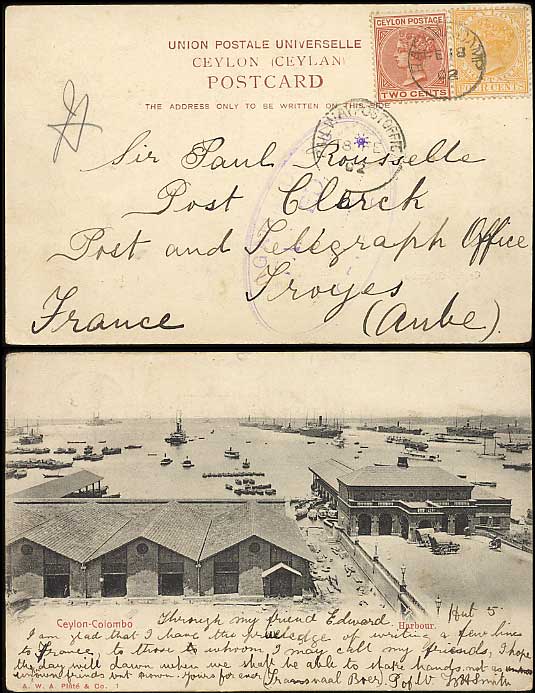 UNION POSTALE UNIVERSELLE
CEYLON (CEYLAN)
POSTCARD
THE ADDRESS ONLY TO BE WRITTEN ON THIS SIDE
CEYLON POSTAGE
TWO CENTS
CENTS
18
02
18 FE
02
Sir Paul Rousselle
Post Clerck
Post and Telegraph Office
Troyes
France (Aube).
Ceylon-Colombo
Harbour.
Through my friend Edward Hut 5
I am glad that I have the priveledge of writing a few lines
to France, to those whom I may call my friends, I hope
the day will dawn when we shall be able to shake hands. not as unknown
friends but known. Yours for ever Transvaal Boer, P of W WHSmith
A. W. A. Plâté & Co. 1